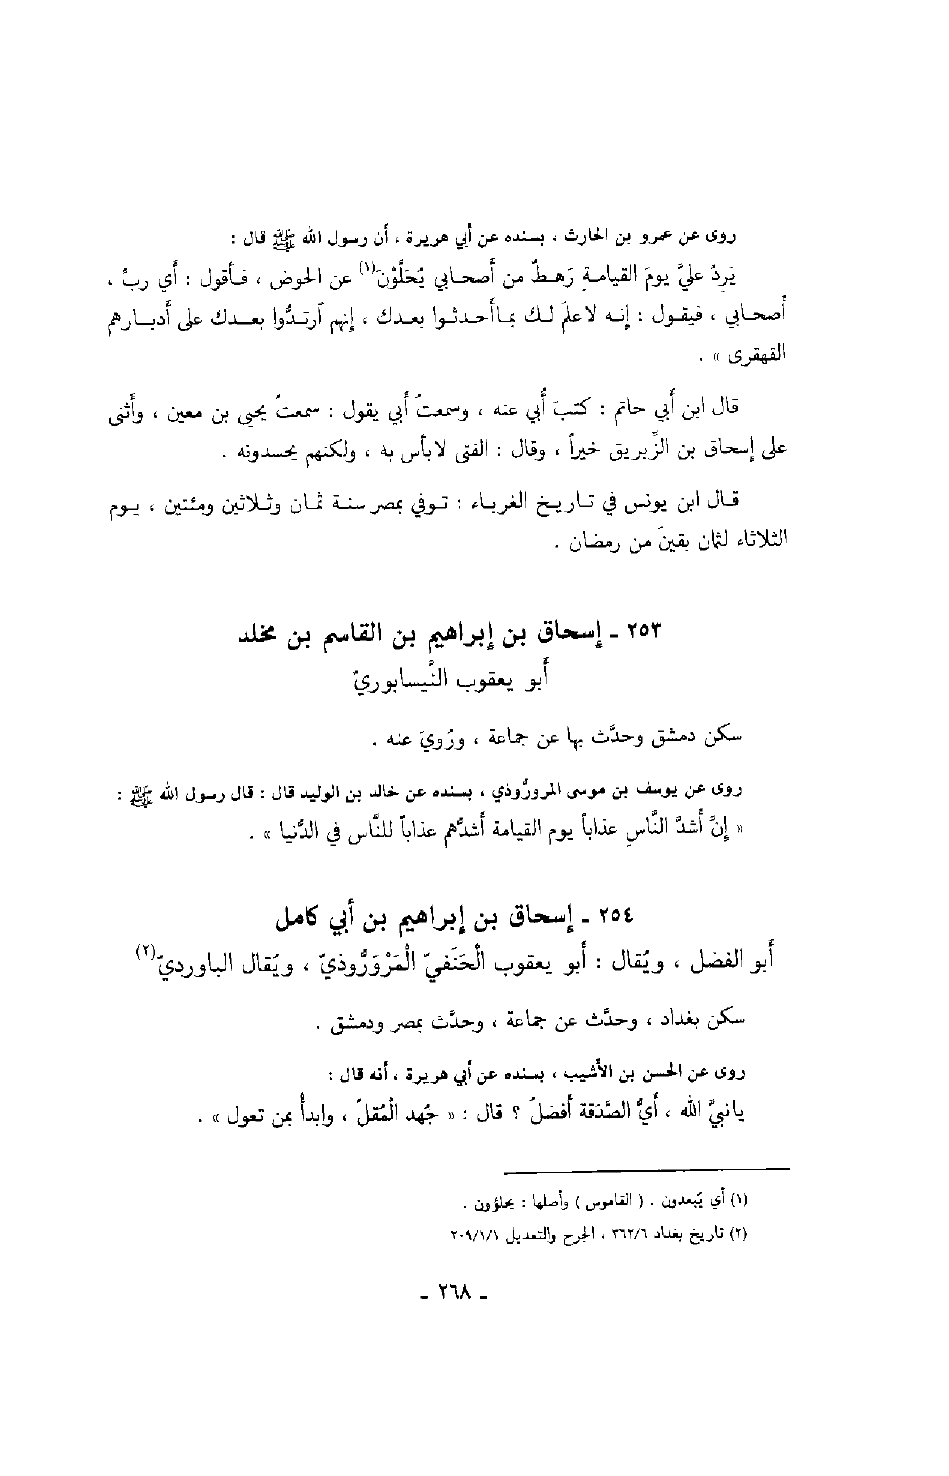 روى عن عمرو بن الحارث ، بسنده عن أبي هريرة ، أن رسول الله ﷺ قال :
يَرِدُ عليَّ يومَ القيامةِ رَهطٌ من أصحابي يُحَلَّوْن(١) عن الحوض ، فأقول : أي ربُّ ،
أصحابي ، فيقول : إنه لاعلمَ لك بماأحدثوا بعدك ، إنهم آرتدُّوا بعدك على أدبارهم
القهقرى » .
قال ابن أبي حاتم : كتبَ أبي عنه ، وسمعتُ أبي يقول : سمعتُ يحيى بن معين ، وأثنى
على إسحاق بن الزِّبريق خيراً ، وقال : الفتى لابأس به ، ولكنهم يحسدونه .
قال ابن يونس في تاريخ الغرباء : توفي بمصر سنة ثمان وثلاثين ومئتين ، يوم
الثلاثاء لثمان بقينَ من رمضان .
٢٥٣ ـ إسحاق بن إبراهيم بن القاسم بن مخلد
أبو يعقوب النَّيسابوريّ
سكن دمشق وحدَّث بها عن جماعة ، ورُويَ عنه .
روى عن يوسف بن موسى المرورُّوذي ، بسنده عن خالد بن الوليد قال : قال رسول الله ﷺ :
« إنَّ أشدَّ النَّاسِ عذاباً يوم القيامة أشدُّهم عذاباً للنَّاس في الدُّنيا » .
٢٥٤ ـ إسحاق بن إبراهيم بن أبي كامل
أبو الفضل ، ويُقال : أبو يعقوب الْحَنَفيّ الْمَرْوَرُّوذيّ ، ويُقال الباورديّ(٢)
سكن بغداد ، وحدَّث عن جماعة ، وحدَّث بمصر ودمشق .
روى عن الحسن بن الأشيب ، بسنده عن أبي هريرة ، أنه قال :
يانبيَّ الله ، أيُّ الصَّدَقة أفضلُ ؟ قال : « جُهد الْمُقلّ ، وابدأُ بمن تعول » .
(١) أي يُبعدون . ( القاموس ) وأصلها : يحلؤون .
(٢) تاريخ بغداد ٣٦٢/٦ ، الجرح والتعديل ٢٠٩/١/١
ـ ٢٦٨ ـ